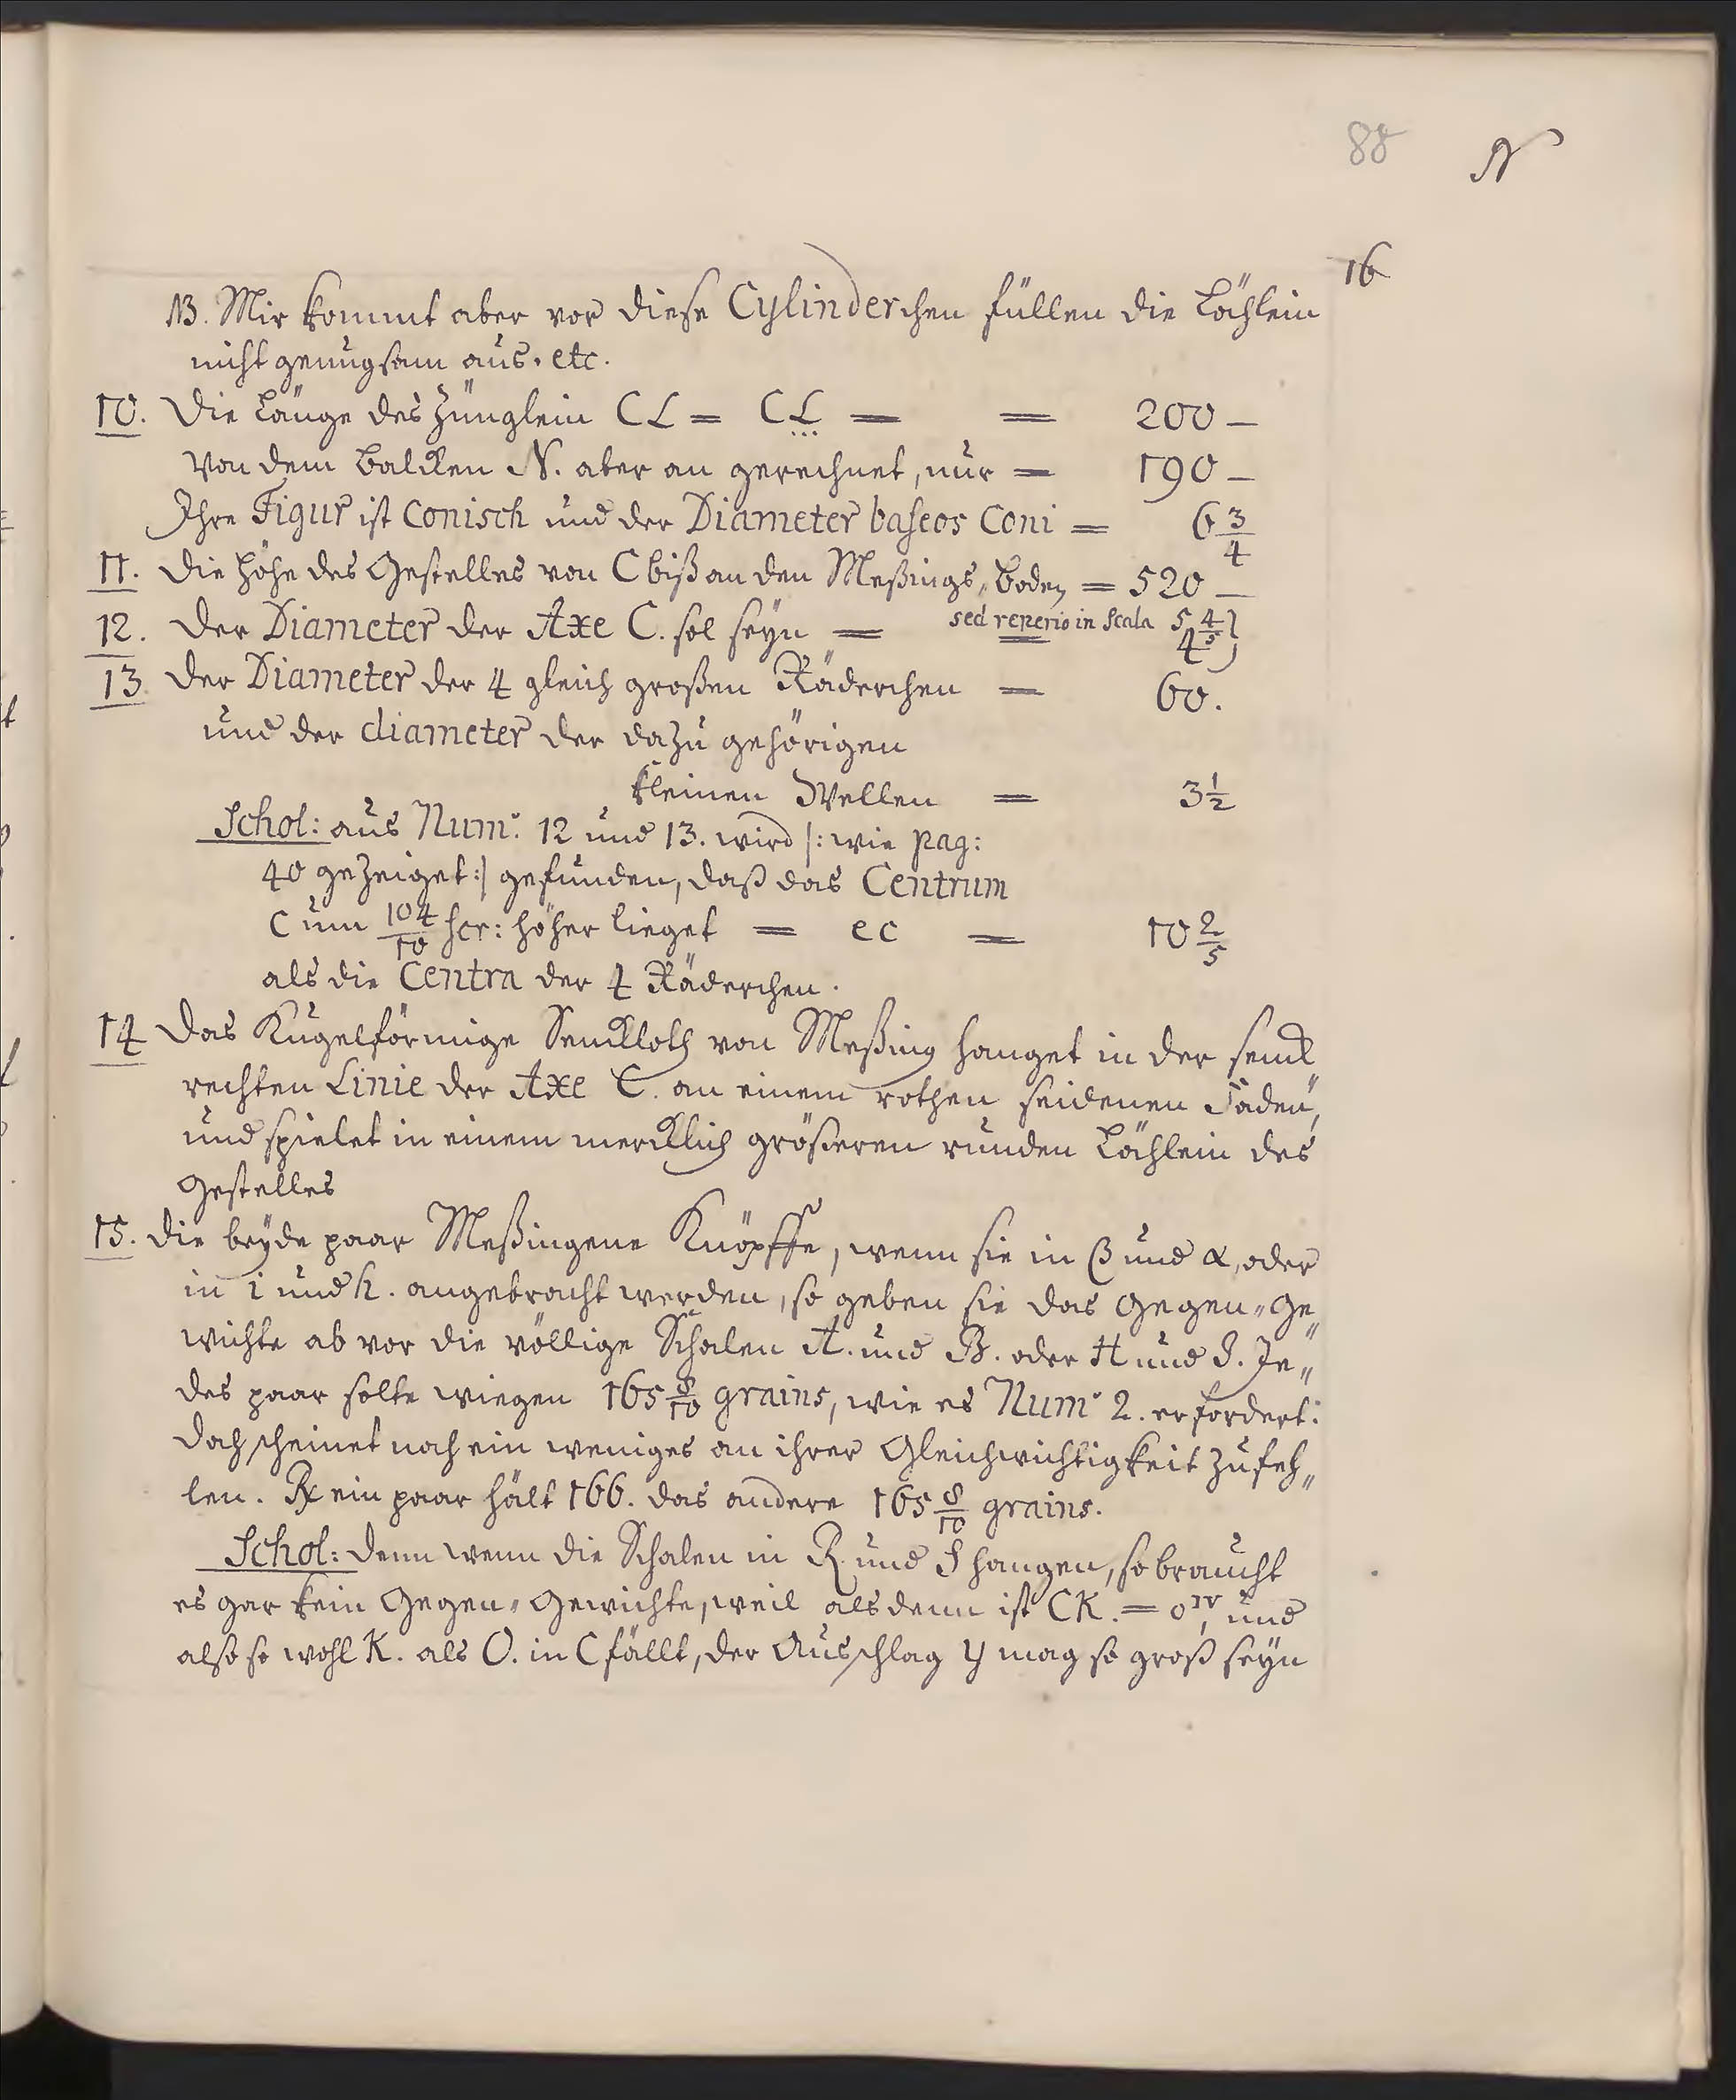 88 N
16
NB. Mir kommt aber vor diese Cylinderchen füllen die Löchlein
nicht genugsam aus. etc.
10. Die Länge des Züngleins CL = CL = = 200 —
Von dem Balcken N. aber an gerechnet, nur = 190 —
Ihre Figur ist Conisch und der Diameter baseos Coni = 6 3/4
11. Die Höhe des Gestelles von C biß an den Meßings„Boden = 520 —
12. Der Diameter der Axe C. sol seyn = = sed reperio in Scala 5 4/5 } 4
13 Der Diameter der 4 gleich großen Räderchen = 60.
und der diameter der dazu gehörigen
kleinen Wellen = 3 1/2
Schol: aus Num: 12 und 13. wird |: wie pag:
40 gezeiget :| gefunden, daß das Centrum
C um 104/10 scr: höher lieget = ec = 10 2/5
als die Centra der 4 Räderchen.
14 Das Kugelförmige Senckloth von Meßing hanget in der senck„
rechten Linie der Axe C. an einem rothen seidenen Faden,
und spielet in einem mercklich größeren runden Löchlein des
Gestelles
15. Die beyde paar Meßingene Knöpffe, wenn sie in β und α, oder
in i und h. angebracht werden, so geben sie das Gegen„Ge„
wichte ab vor die völlige Schalen A. und B. oder H und I. Je„
des paar solte wiegen 165 8/10 grains, wie es Num: 2. erfordert:
doch scheinet noch ein weniges an ihrer Gleichwichtigkeit zu feh„
len. ein paar hält 166. das andere 165 8/10 grains.
Schol: Denn wenn die Schalen in R und S hangen, so braucht
es gar kein Gegen„Gewichte, weil alsdenn ist CK. = 0^IV, und
also so wohl K. als O. in C fällt, der Ausschlag y mag so groß seyn